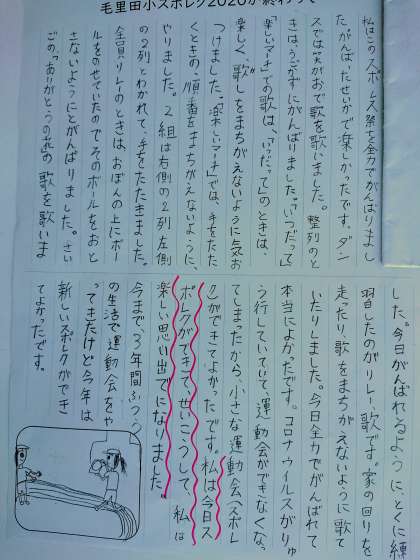 毛里田小スポレク2020が終わって
私はこのスポレス祭を全力でがんばりまし
た。がんばったせいかで楽しかったです。ダン
スでは笑がおで歌を歌いました。整列のと
きは、うごかずにがんばりました。「いつだって」
「楽しいマーチ」での歌は、「いつだって」のときは、
楽しく、歌しをまちがえないように気お
つけました。「楽しいマーチ」では、手をたた
くときの、順番をまちがえないように、
やりました。2組は右側の2列左側
の2列とわかれて、手をたたきました。
全員リレーのときは、おぼんの上にボー
ルをのせていたのでそのボールをおと
さないようにとがんばりました。さい
ごの、「ありがとうの花」の歌を歌いま
した。今日がんばれるように、とくに練
習したのがリレー歌です。家の回りを
走ったり、歌をまちがえないように歌て
いたりしました。今日全力でがんばれて
本当によかったです。コロナウイルスがりゅ
う行していていて、運動会ができなくなっ
てしまったから、小さな運動会(スポレ
ク)ができてよかったです。私は今日ス
ポレクができて、せいこうして、私は
楽しい思い出でになりました。
今まで、3年間ふつう
の生活で運動会をや
ってきたけど今年は
新しいスポレクができ
てよかったです。